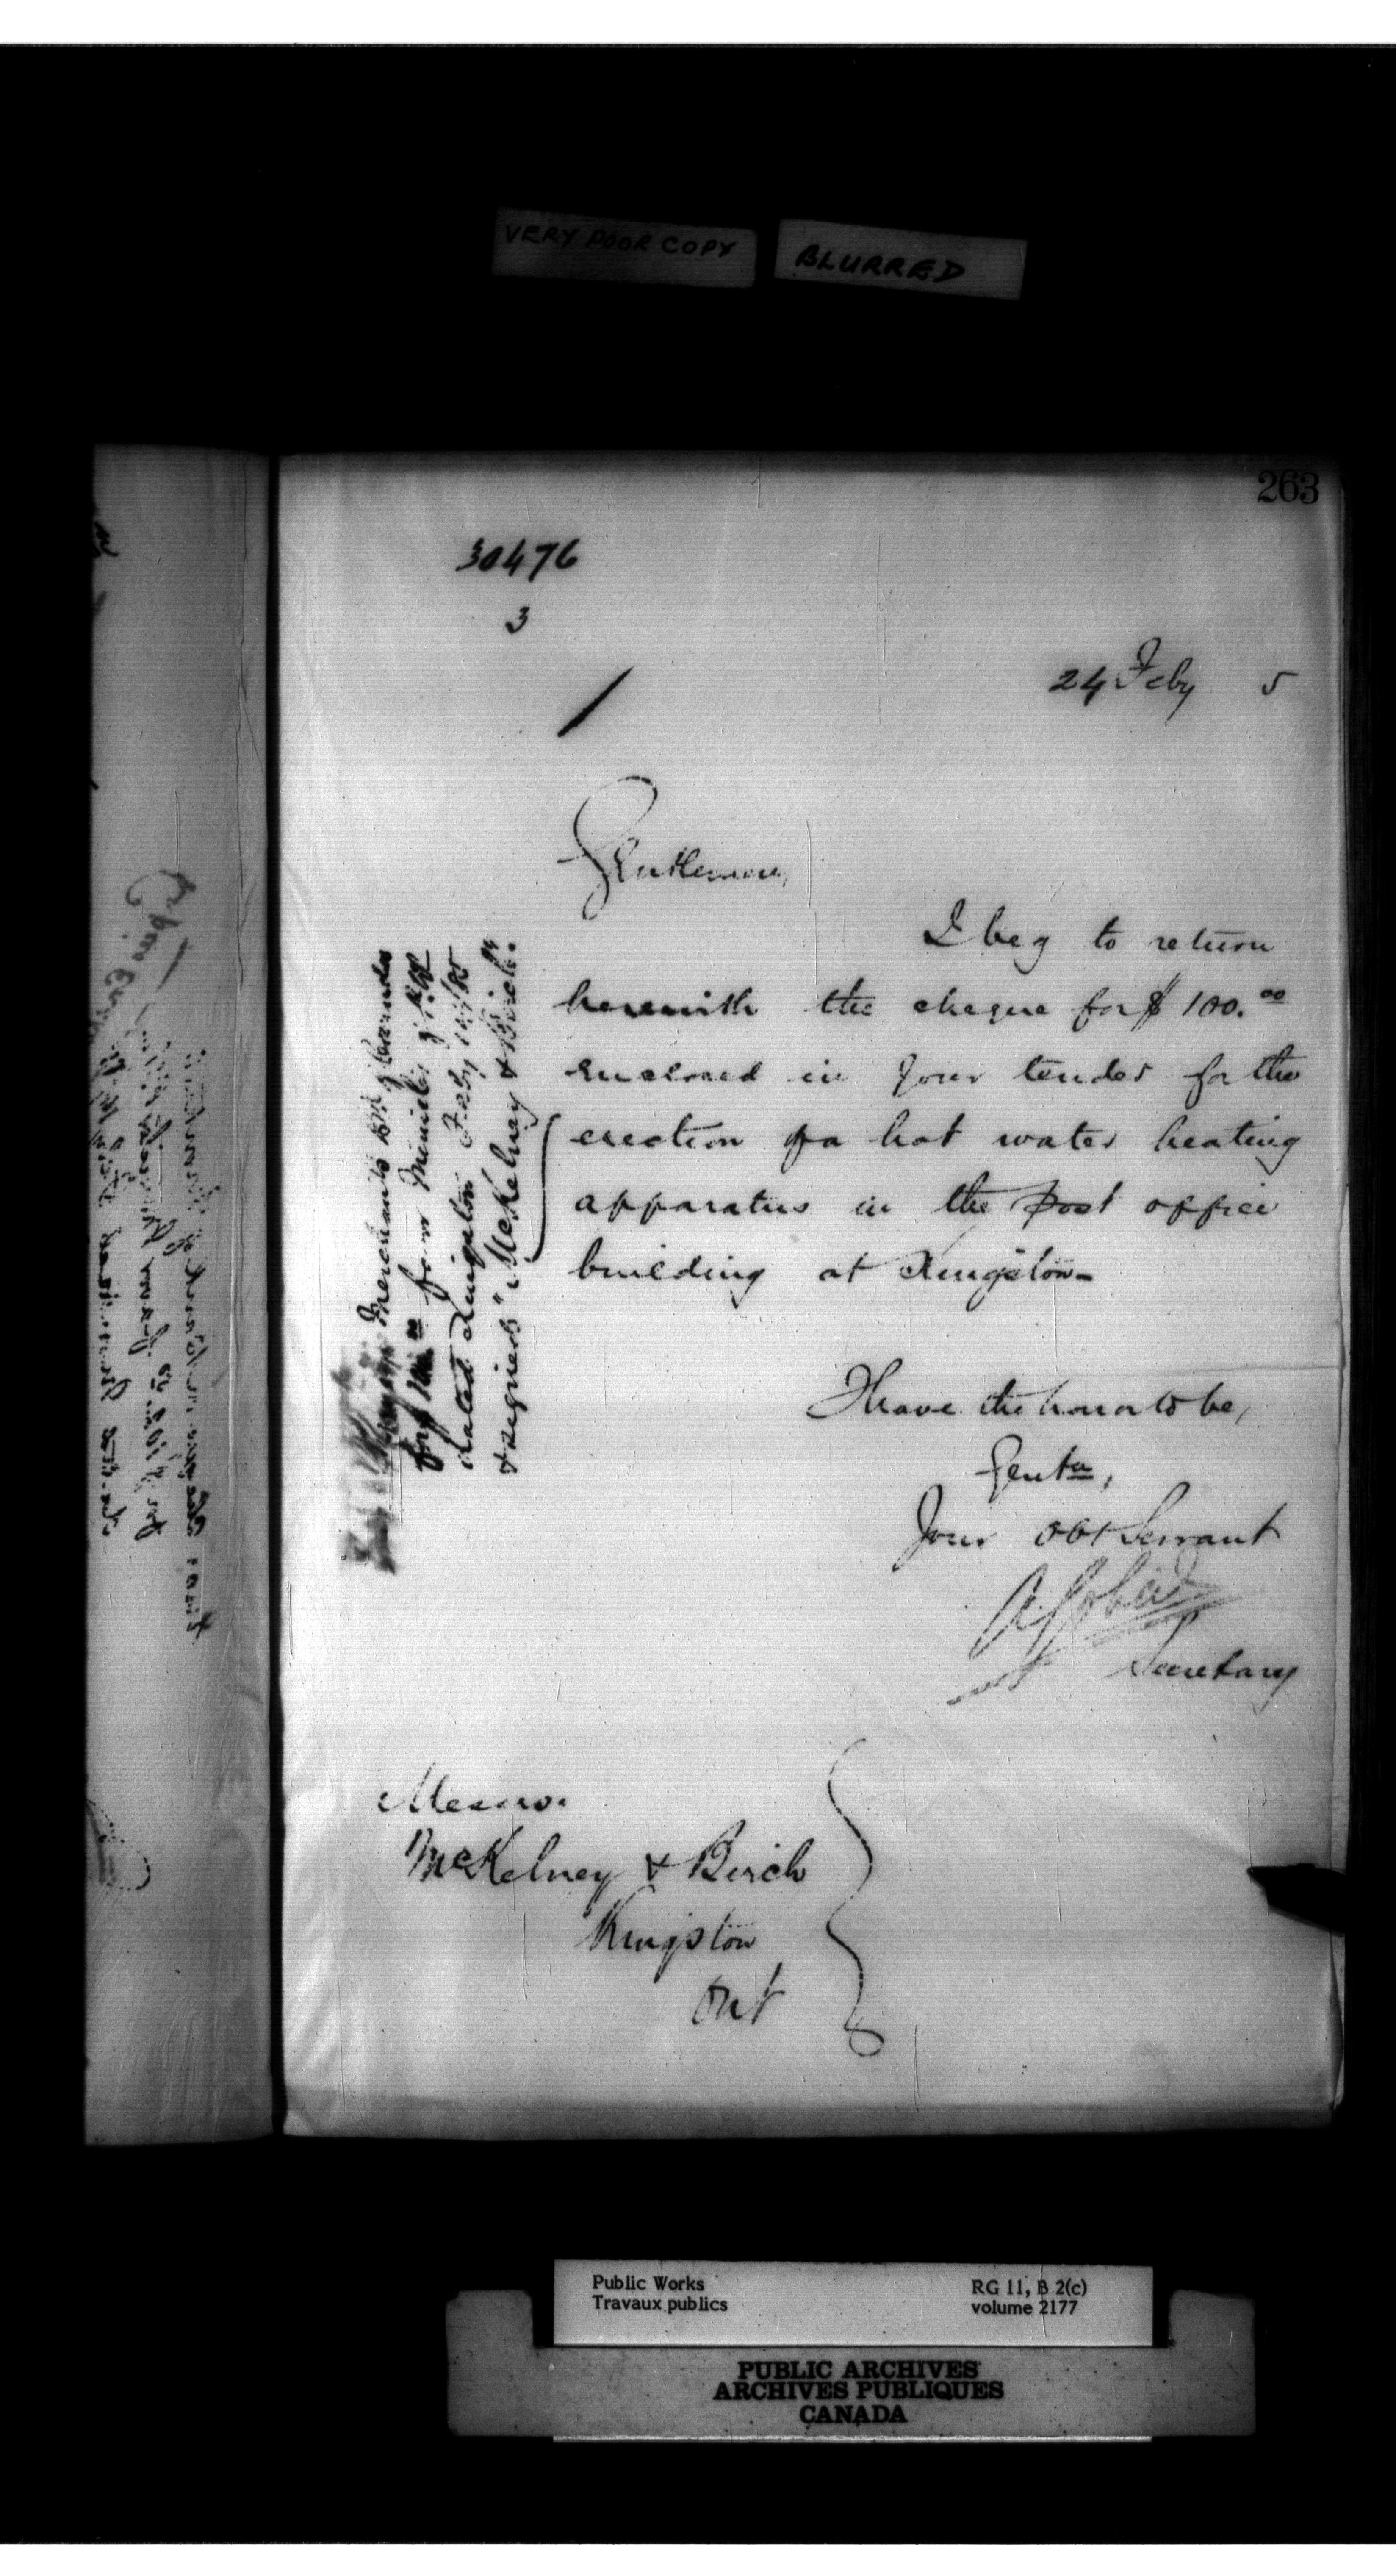 VERY POOR COPY
BLURRED
263
30476
3
24 Feby 5
Gentlemen,
I beg to return
herewith the cheque for $100.00
enclosed in your tender for the
erection of a hot water heating
apparatus in the Post office
building at Kingston-
Merchants Bk of Canada
for $100.00 favor Minister of P.W.
dated Kingston Feby
& signed "McKelvey & Birch."
I have the honor to be,
Gentn,
Your obt Servant
A Gobeil
Secretary
Messrs.
McKelvey & Birch
Kingston
Ont
Public Works
Travaux publics
RG 11, B 2(c)
volume 2177
PUBLIC ARCHIVES
ARCHIVES PUBLIQUES
CANADA